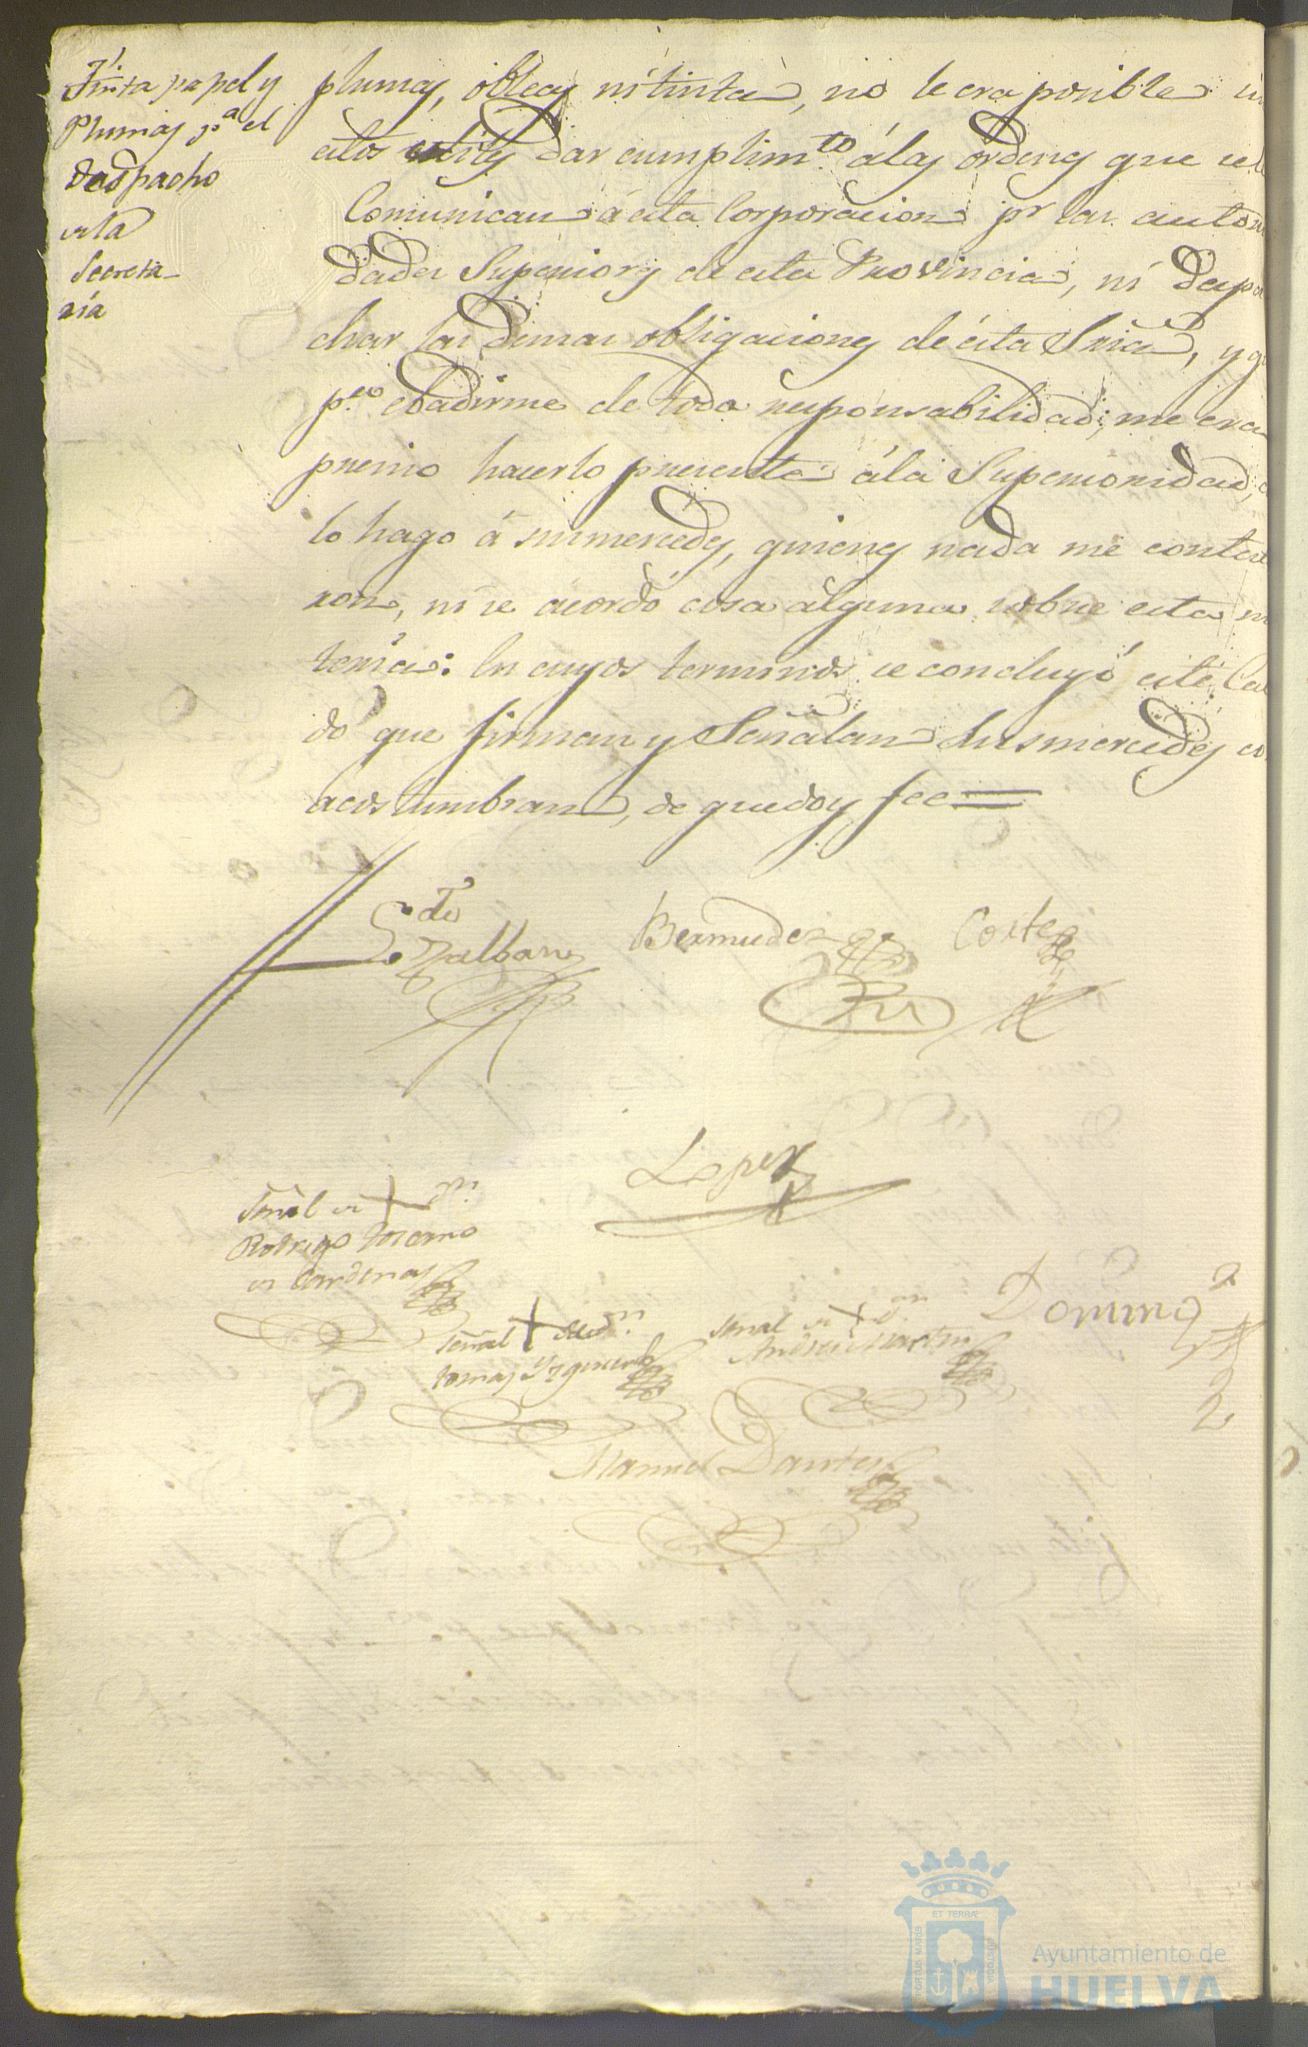 Tinta papel y
Plumas pª el
despacho
de la
Secreta-
ria
plumas, obleas ni tinta, no le era posible
dar cumplimto á las órdenes que se le
Comunican á esta Corporacion pr las autori
dades Superiores de esta Provincia, ni despa
char las demas obligaciones de ésta Sria, y
evadirme de toda responsabilidad, me era
preciso hacerlo presente á la Superioridad,
lo hago á sus mercedes, quienes nada me contesta
ron, ni se acordó cosa alguna sobre esta ma
teria: En cuyos terminos se concluyó éste Cavil
do que firman y Señalan Sus mercedes co
acostumbran, de que doy fee=
Bermudez
Cortes
Lopez
Señal de + Dn
Rodrigo
de Cardenas
Señal + de Dn
tomas Yzquierdo
Señal de + Dn
Andres Martin
Doming
Manuel Dantes
ET TERRÆ
PORTUS MARIS
CUSTODIA
Ayuntamiento de
HUELVA